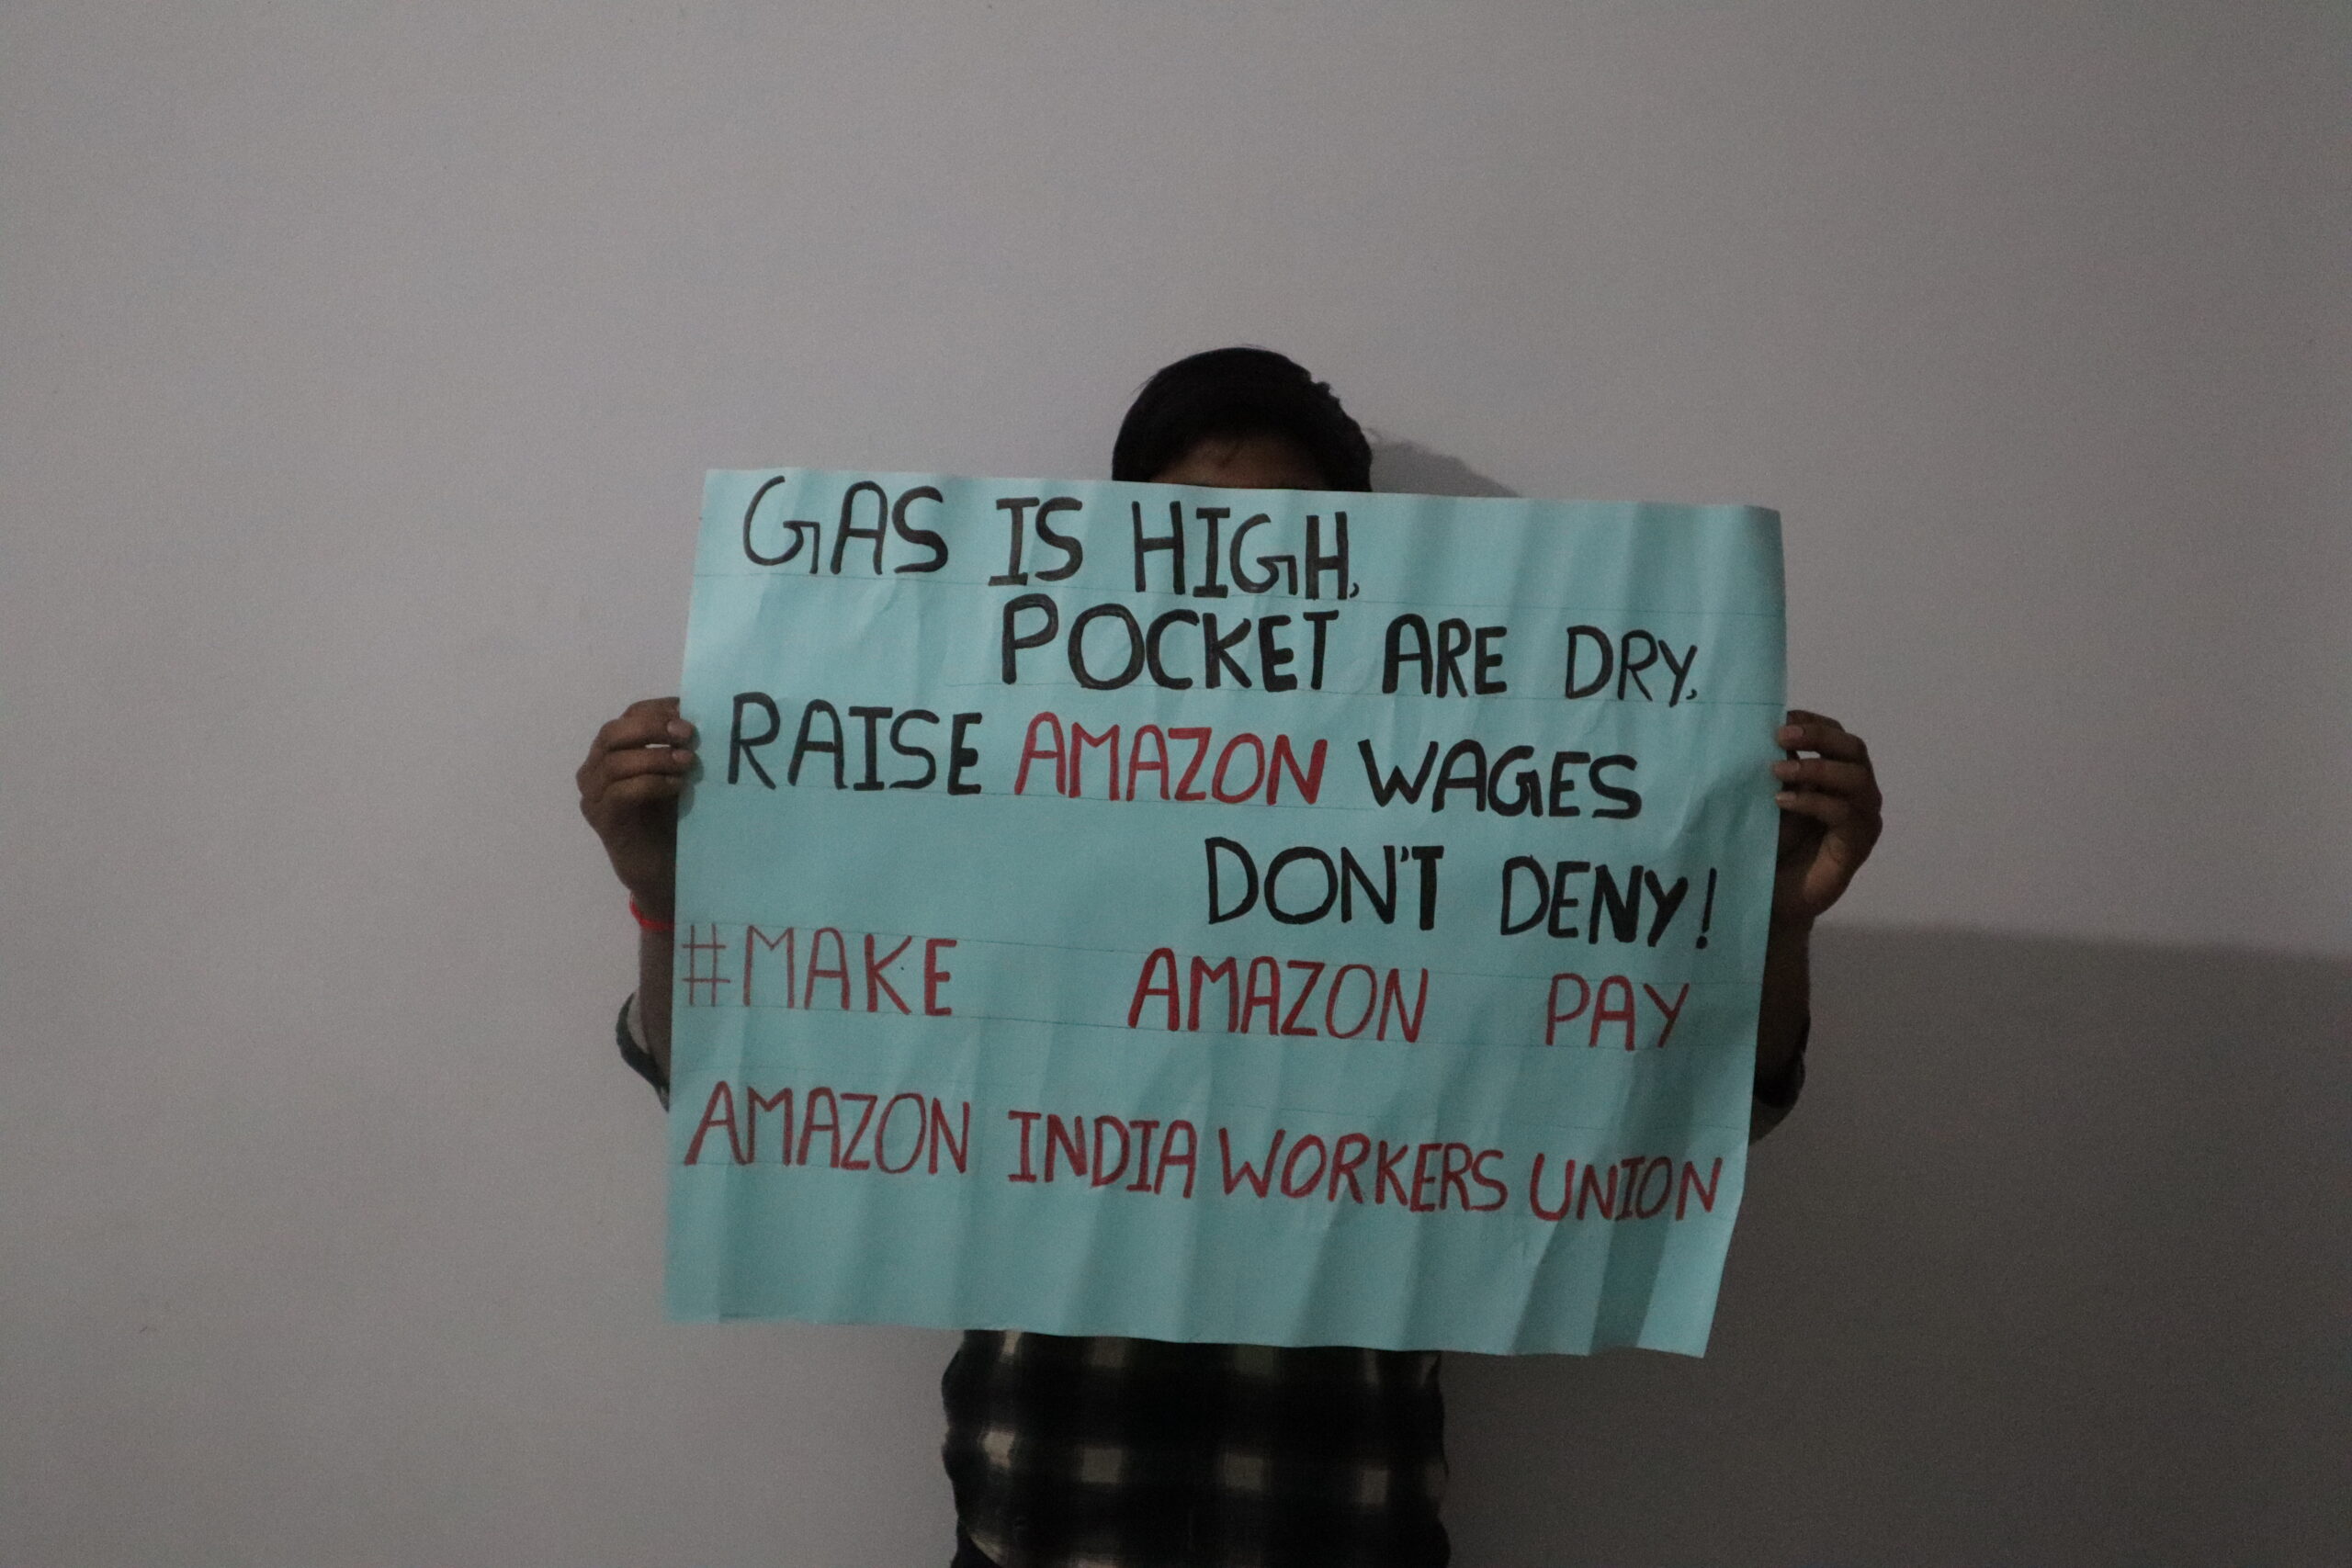 GAS IS HIGH,
POCKET ARE DRY,
RAISE AMAZON WAGES
DON'T DENY!
#MAKE AMAZON PAY
AMAZON INDIA WORKERS UNION